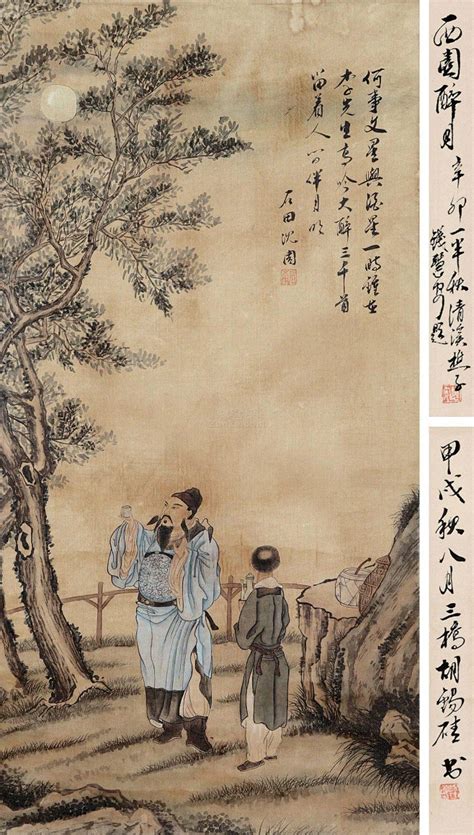 西園醉月
辛卯一半秋清溪樵子
題
甲戌秋八月三橋胡錫珪書
何事文星與酒星一時鍾在
李先生高吟大醉三千首
留着人间伴月明
石田沈周